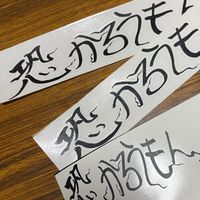 恐かろうもん
恐かろうもん
恐かろうもん